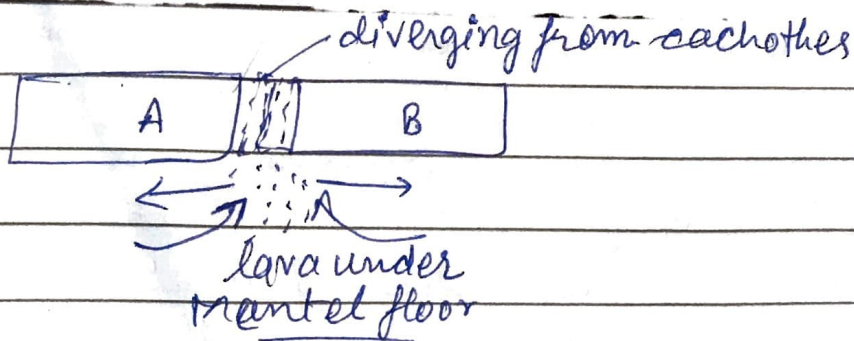 diverging from eachothes
A
B
A
lava under
Mantel floor